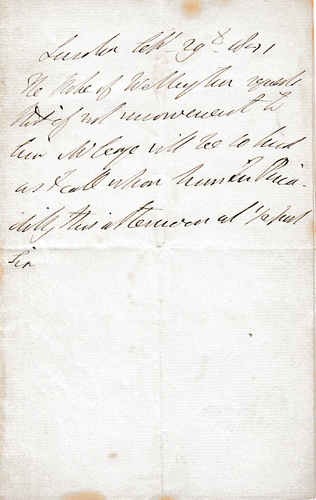 London Sept 29th 1841
The Duke of Wellington requests
that if not inconvenient to
him Mr will be so kind
as to call upon him in Picca-
dilly this afternoon at 1/2 past
Six